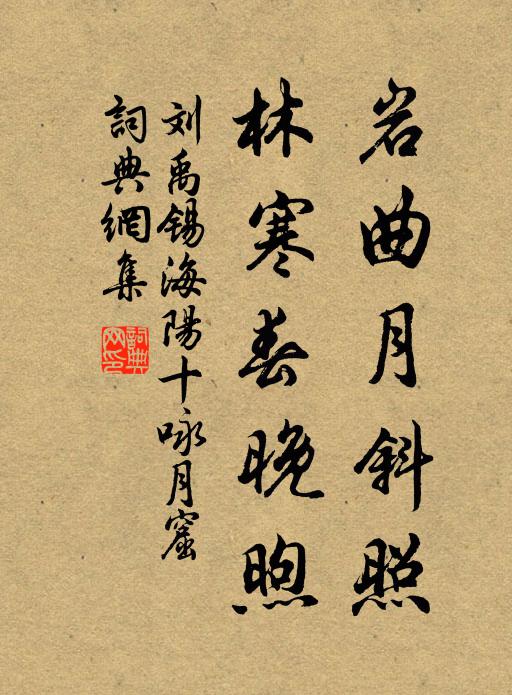 岩曲月斜照
林寒春晚煦
刘禹锡海陽十咏月窟
詞典網集
詞典网印